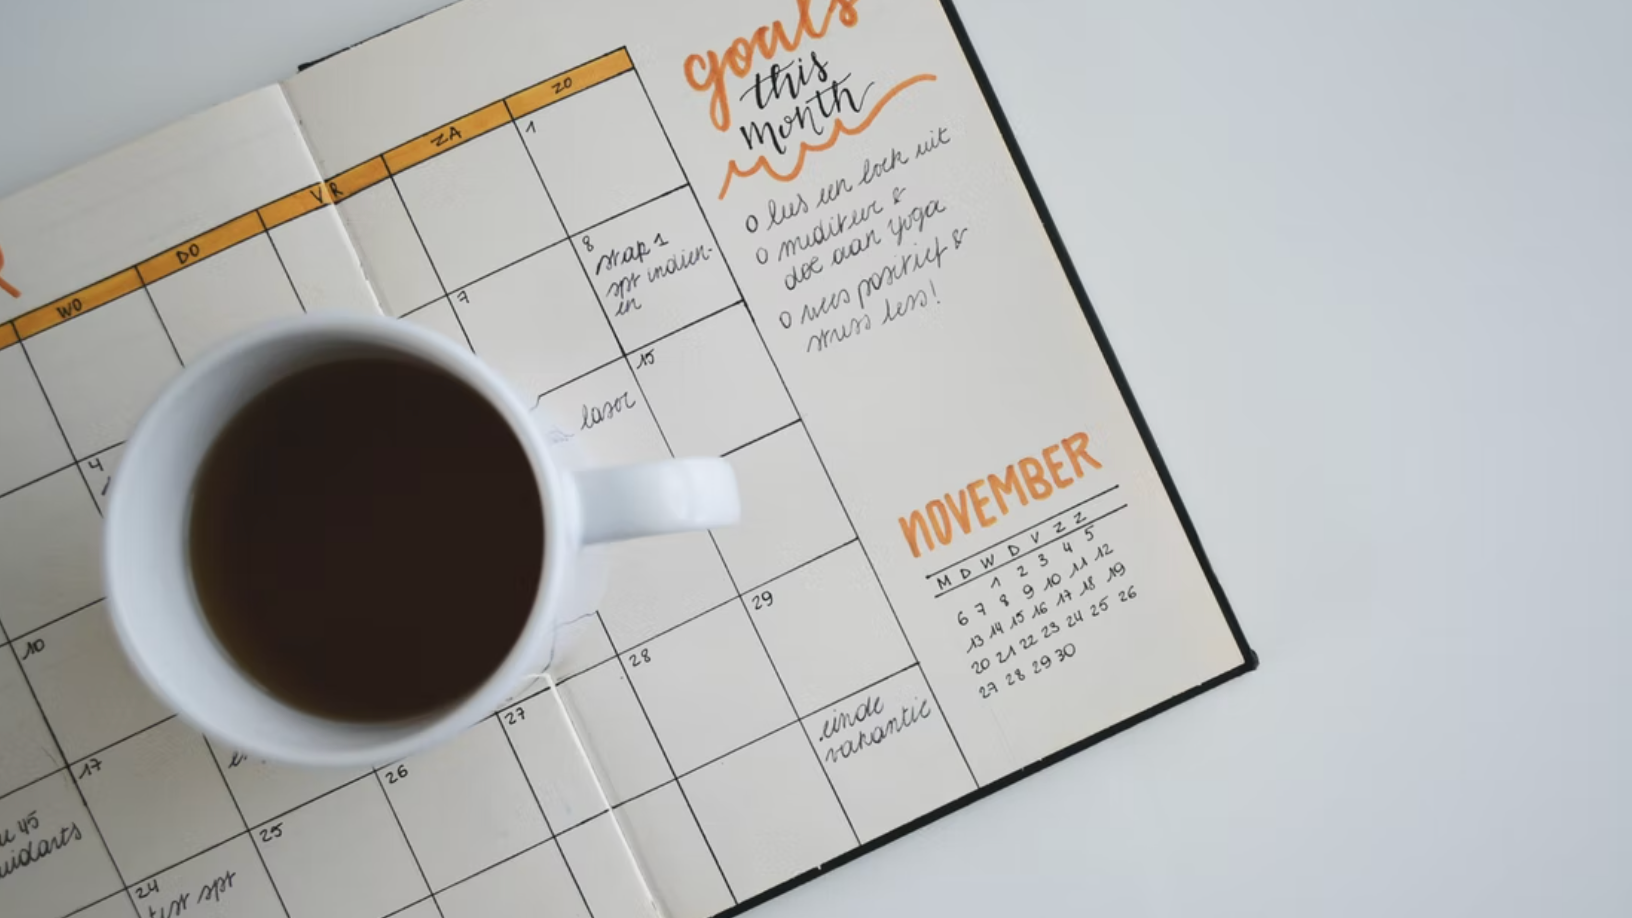 R
WO DO VR ZA ZO
1
4
7
8
stap 1
spt indien-
en
laser
15
10
17
u 45
24
test spt
25
26
27
28
29
einde
vakantie
goals
this
month
o lees een boek uit
o mediteer &
doe aan yoga
o wees positief &
stress less!
NOVEMBER
M D W D V Z Z
1 2 3 4 5
6 7 8 9 10 11 12
13 14 15 16 17 18 19
20 21 22 23 24 25 26
27 28 29 30